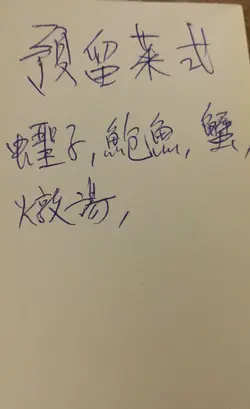 預留菜式
蟶子,鮑魚,蟹,
燉湯,